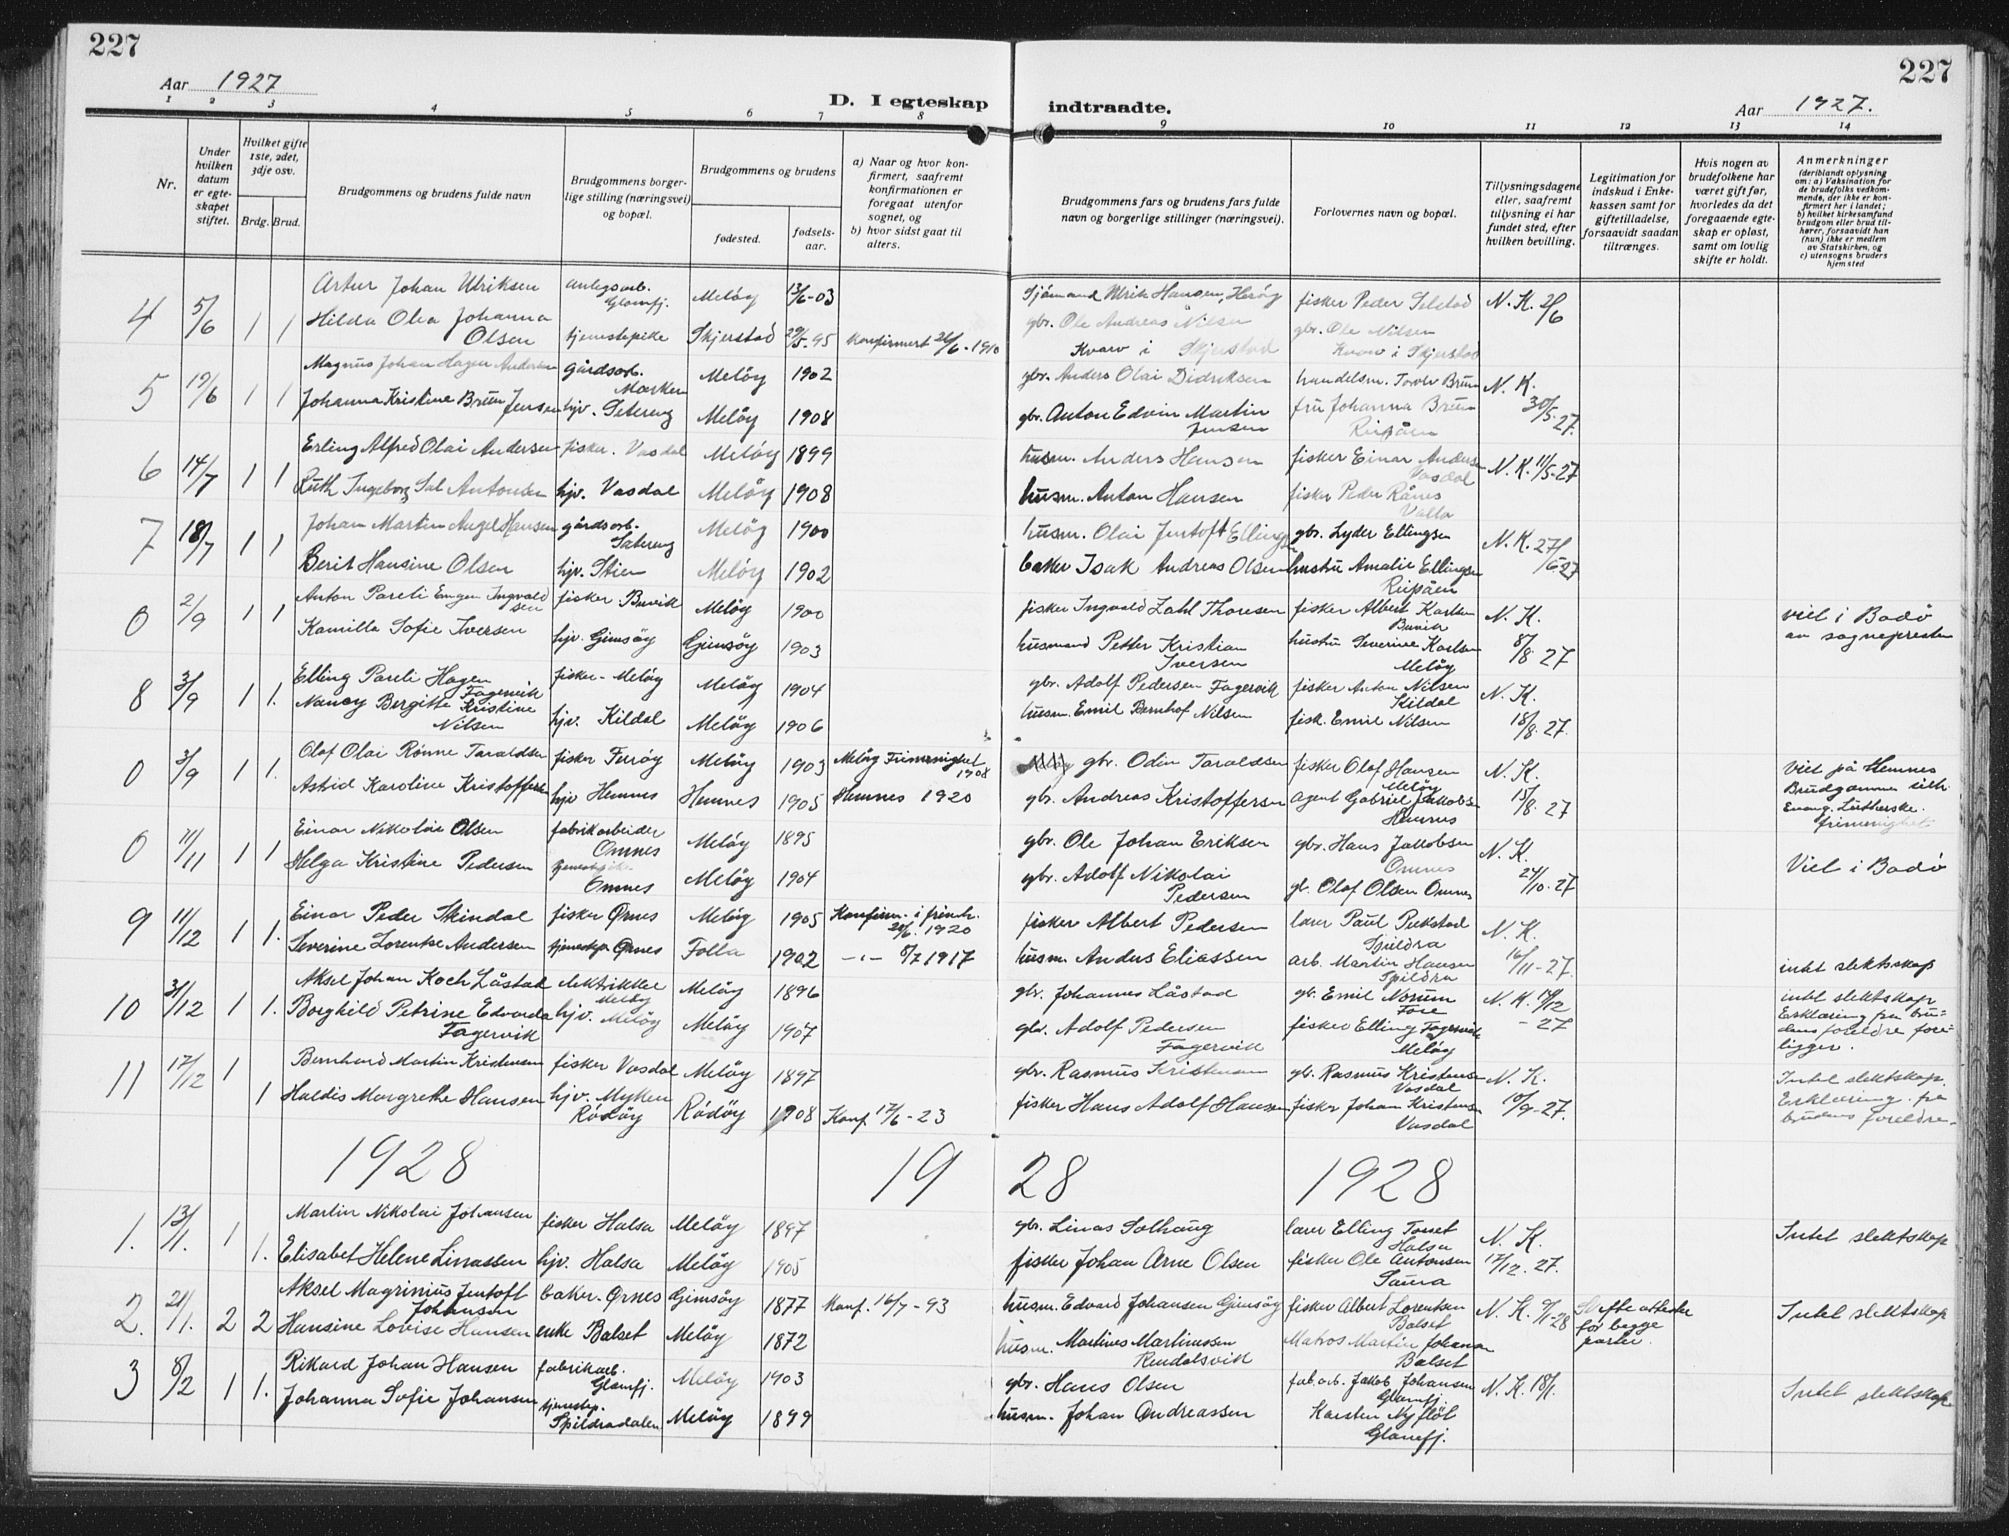 227
227
Aar 1927
D. I egteskap
indtraadte.
Aar 1927.
1 2 3 4 5 6 7 8 9 10 11 12 13 14
Nr.
Under hvilken datum er egte- skapet stiftet.
Hvilket gifte 1ste, 2det, 3dje osv.
Brdg. Brud.
Brudgommens og brudens fulde navn
Brudgommens borger- lige stilling (næringsvei) og bopæl.
Brudgommens og brudens
fødested.
fødsels- aar.
a) Naar og hvor kon- firmert, saafremt konfirmationen er foregaat utenfor sognet, og
b) hvor sidst gaat til alters.
Brudgommens fars og brudens fars fulde navn og borgerlige stillinger (næringsvei).
Forlovernes navn og bopæl.
Tillysningsdagene eller, saafremt tillysning ei har fundet sted, efter hvilken bevilling.
Legitimation for indskud i Enke- kassen samt for giftetilladelse, forsaavidt saadan tiltrænges.
Hvis nogen av brudefolkene har været gift før, hvorledes da det foregaaende egte- skap er opløst, samt om lovlig skifte er holdt.
Anmerkninger (deriblandt oplysning om: a) Vaksination for de brudefolks vedkom- mende, der ikke er kon- firmert her i landet; b) hvilket kirkesamfund brudgom eller brud til- hører, forsaavidt han (hun) ikke er medlem av Statskirken, og c) utensogns bruders hjemsted
4 5/6 1 1 Artur Johan Ulriksen anlegsarb. Glomfj. Meløy 13/6-03 Sjömand Ulrik Hansen, Herøy fisker Peder Selstad N. K. 2/6
Hilda Olea Johanna Olsen tjenestepike Skjerstad 29/5-95 Konfirmert 26/6-1910 gbr. Ole Andreas Nilsen Kvarv i Skjerstad gbr. Ole Nilsen Kvarv i Skjerstad
5 19/6 1 1 Magnus Johan Hagen Andersen gårdsarb. Marken Meløy 1902 gbr. Anders Olai Didriksen handelsm. Tover Bruun N. K. 30/5-27.
Johanna Kristine Bruun Jensen hjv. Setereng Meløy 1908 gbr. Anton Edvin Martin Jensen fru Johanna Bruun Reipåen
6 14/7 1 1 Erling Alfred Olai Andersen fisker. Vasdal Meløy 1899 husm. Anders Hansen fisker Einar Anders Vasdal N. K. 11/5-27
Ruth Ingeborg Sal Antonsen hjv. Vasdal Meløy 1908 husm. Anton Hansen fisker Peder Rånes Valla
7 18/7 1 1 Johan Martin Angel Hansen gårdsarb. Setereng Meløy 1900 husm. Olai Jentoft Ellings gbr. Lyder Ellingsen N. K. 27/6-27
Berit Hansine Olsen hjv. Stien Meløy 1902 baker Isak Andreas Olsen hustru Amalie Ellingsen Reipåen
0 2/9 1 1 Anton Pareli Emgen Ingvaldsen fisker Buvik Meløy 1900 fisker Ingvald Zahl Thoresen fisker Albert Karlsen Buvik N. K. 8/8-27 viet i Bodø av sognepresten
Kamilla Sofie Iversen hjv. Gimsøy Gimsøy 1903 husmand Petter Kristian Iversen hustru Severine Karlsen Meløy
8 3/9 1 1. Elling Pareli Hagen Fagervik fisker - Meløy Meløy 1904 gbr. Adolf Pedersen Fagervik fisker Anton Nilsen Kildal N. K. 18/8-27.
Nancy Bergitte Kristine Nilsen hjv. Kildal Meløy 1906 husm. Emil Bernhof Nilsen fisk. Emil Nilsen
0 3/9 1 1. Olaf Olai Rønne Taraldsen fisker Ferøy Meløy 1903 Meløy Frimenighet 1908 gbr. Odin Taraldsen fisker Olaf Hansen Meløy N. K. 15/8-27 Viet på Hemnes Brudgommen tilh. Evang. Lutherske. frimenighet
Astrid Karoline Kristoffersen hjv Hemnes Hemnes 1905 Hemnes 1920 gbr. Andreas Kristoffersen agent Gabriel Jakobsen Hemnes
0 11/11 1 1 Einar Nikolai Olsen fabrikarbeider Ømnes Meløy 1895 gbr. Ole Johan Eriksen gbr. Hans Jakobsen Ømnes N. K. 24/10-27 Viet i Bodø
Helga Kristine Pedersen tjenestepike Ømnes Meløy 1904 gbr. Adolf Nikolai Pedersen gb. Olaf Olsen Ømnes
9 11/12 1 1. Einar Peder Skindal fisker Ørnes Meløy 1905 Konfirm. i frimh. 20/6 1920 fisker Albert Pedersen lærer Paul Pukstad Spildra N. K. 16/11-27. intet slektskap
Severine Lorentse Andersen tjenestep Ørnes Folla 1902 -"- 8/7 1917 husm. Anders Eliassen arb. Martin Hansen Spildra
10 31/12 1 1. Aksel Johan Koch Låstad elektrikker Meløy Meløy 1896 gbr. Johannes Låstad gb. Emil Norum Fore N. K. 19/12-27 intet slektskap Erklæring fra bru- dens foreldre fore- ligger.
Borghild Petrine Edvarda Fagervik hjv. Meløy Meløy 1907 gbr. Adolf Pedersen Fagervik fisker Elling Fagervik Meløy
11 17/12 1 1 Bernhard Martin Kristensen fisker Vasdal Meløy 1897 gbr. Rasmus Kristensen gb. Rasmus Kristensen Vasdal N. K. 10/9-27. Intet slektskap. Erklæring fra brudens foreldre.
Haldis Margrethe Hansen hjv. Myken Rödöy Rödöy 1908 Konf. 17/6-23 fisker Hans Adolf Hansen fisker Johan Kristensen Vasdal
1928 19 28 1928
1. 13/1. 1 1. Martin Nikolai Johansen fisker Halsa Meløy 1897 gbr. Linas Solhaug lærer Elling Torset Halsa N. K. 17/12-27. Intet slektskap
Elisabet Helene Linassen hjv. Halsa Meløy 1905 fisker Johan Arne Olsen fisker Ole Antonsen Saura
2. 21/1. 2 2 Aksel Magrinius Jentoft Johansen baker. Ørnes Gimsøy 1877 Konf. 16/7-93 husm. Edvard Johansen Gimsøy fisker Albert Lorentsen Balset N. K. 9/1-28 Skifteattester for begge parter. Intet slektskap
Hansine Lovise Hansen enke Balset Meløy 1872 husm. Martines Martinussen Rendalsvik Matros Martin Johansen Balset
3 8/2 1 1. Rikard Johan Hansen fabrikarb. Glomfj. Meløy 1903 gbr. Hans Olsen fab.arb. Jakob Johansen Glomfj. N. K. 18/1. Intet slektskap
Johanna Sofie Johansen tjenestep. Spildradalen Meløy 1899 husm. Johan Andreassen Karsten Nyfløt Glomfj.